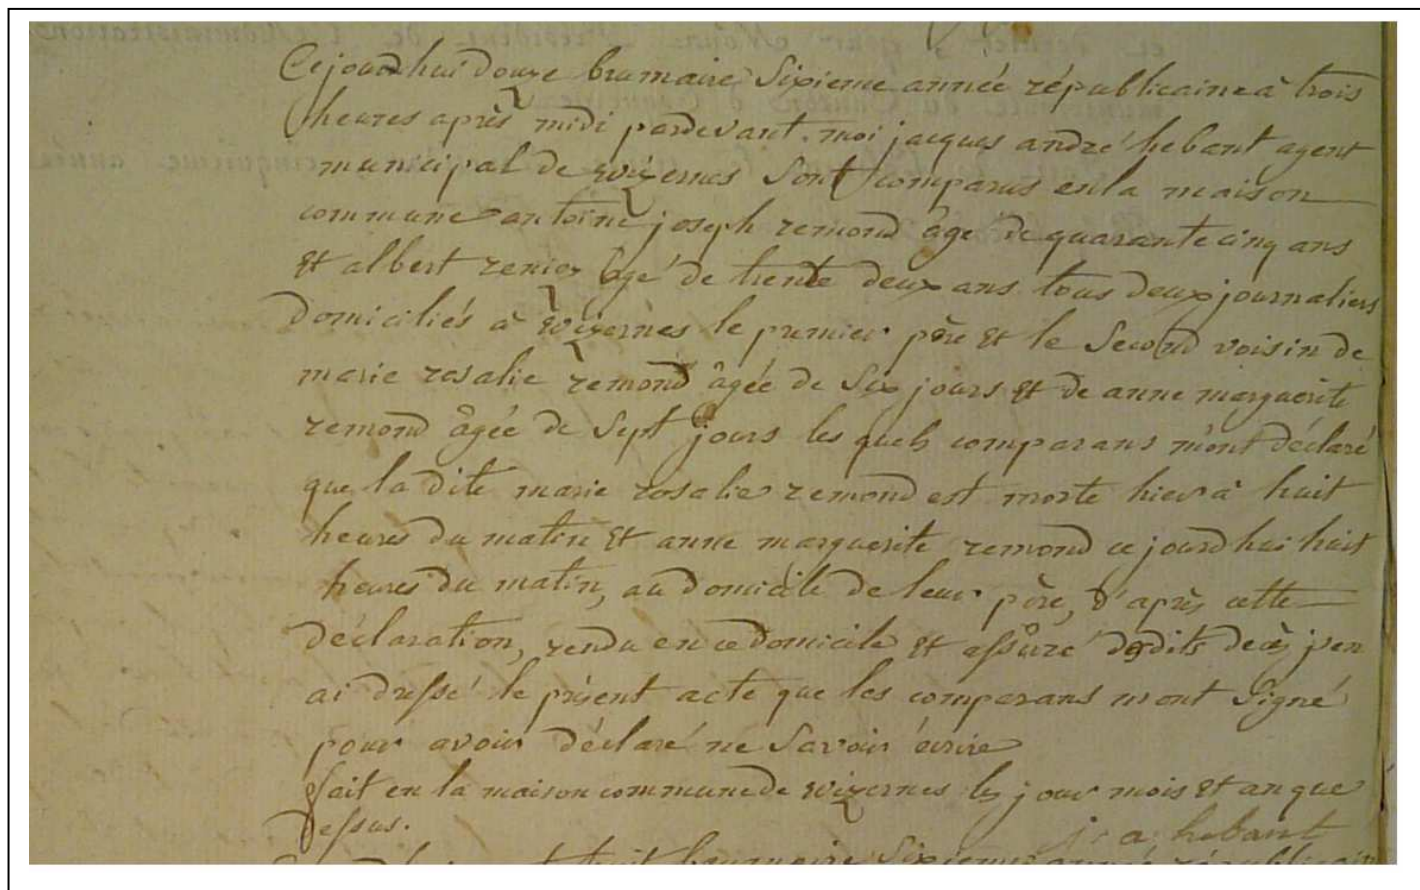 Cejourdhui douze brumaire Sixieme année républicaine à trois
heures après midi pardevant moi jacques andré hebant agent
municipal de wizernes Sont comparus en la maison
commune antoine joseph remond âgé de quarante cinq ans
Et albert renier âgé de trente deux ans tous deux journaliers
Domiciliés à wizernes le premier père Et le Second voisin de
marie rosalie remond âgée de Six jours Et de anne marguerite
remond âgée de Sept jours les quels comparans m'ont déclaré
que la dite marie rosalie remond est morte hier à huit
heures du matin Et anne marguerite remond ce jourdhui huit
heures du matin, au domicile de leur père, d'après cette
déclaration, rendu en ce domicile Et assuré desdits decès j'en
ai dressé le présent acte que les comparans n'ont Signé
pour avoir déclaré ne Savoir écrire
fait en la maison commune de wizernes les jour mois Et an que
dessus.
j. a. hebant
Sixieme année républicain